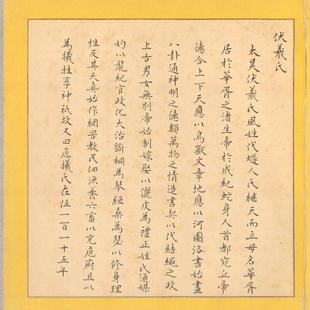 伏羲氏
太昊伏羲氏風姓代燧人氏繼天而立母名華胥
居於華胥之渚生帝於成紀蛇身人首都宛丘帝
德合上下天應以鳥獸文章地應以河圖洛書始畫
八卦通神明之德類萬物之情造書契以代結繩之政
上古男女無別帝始制嫁娶以儷皮為禮正姓氏通媒
妁以龍紀官政化大治斲桐為琴絙桑為瑟以修身理
性反其天真始作網罟教民佃漁養六畜以充庖廚且以
為犧牲享神祇故又曰庖犧氏在位一百一十五年